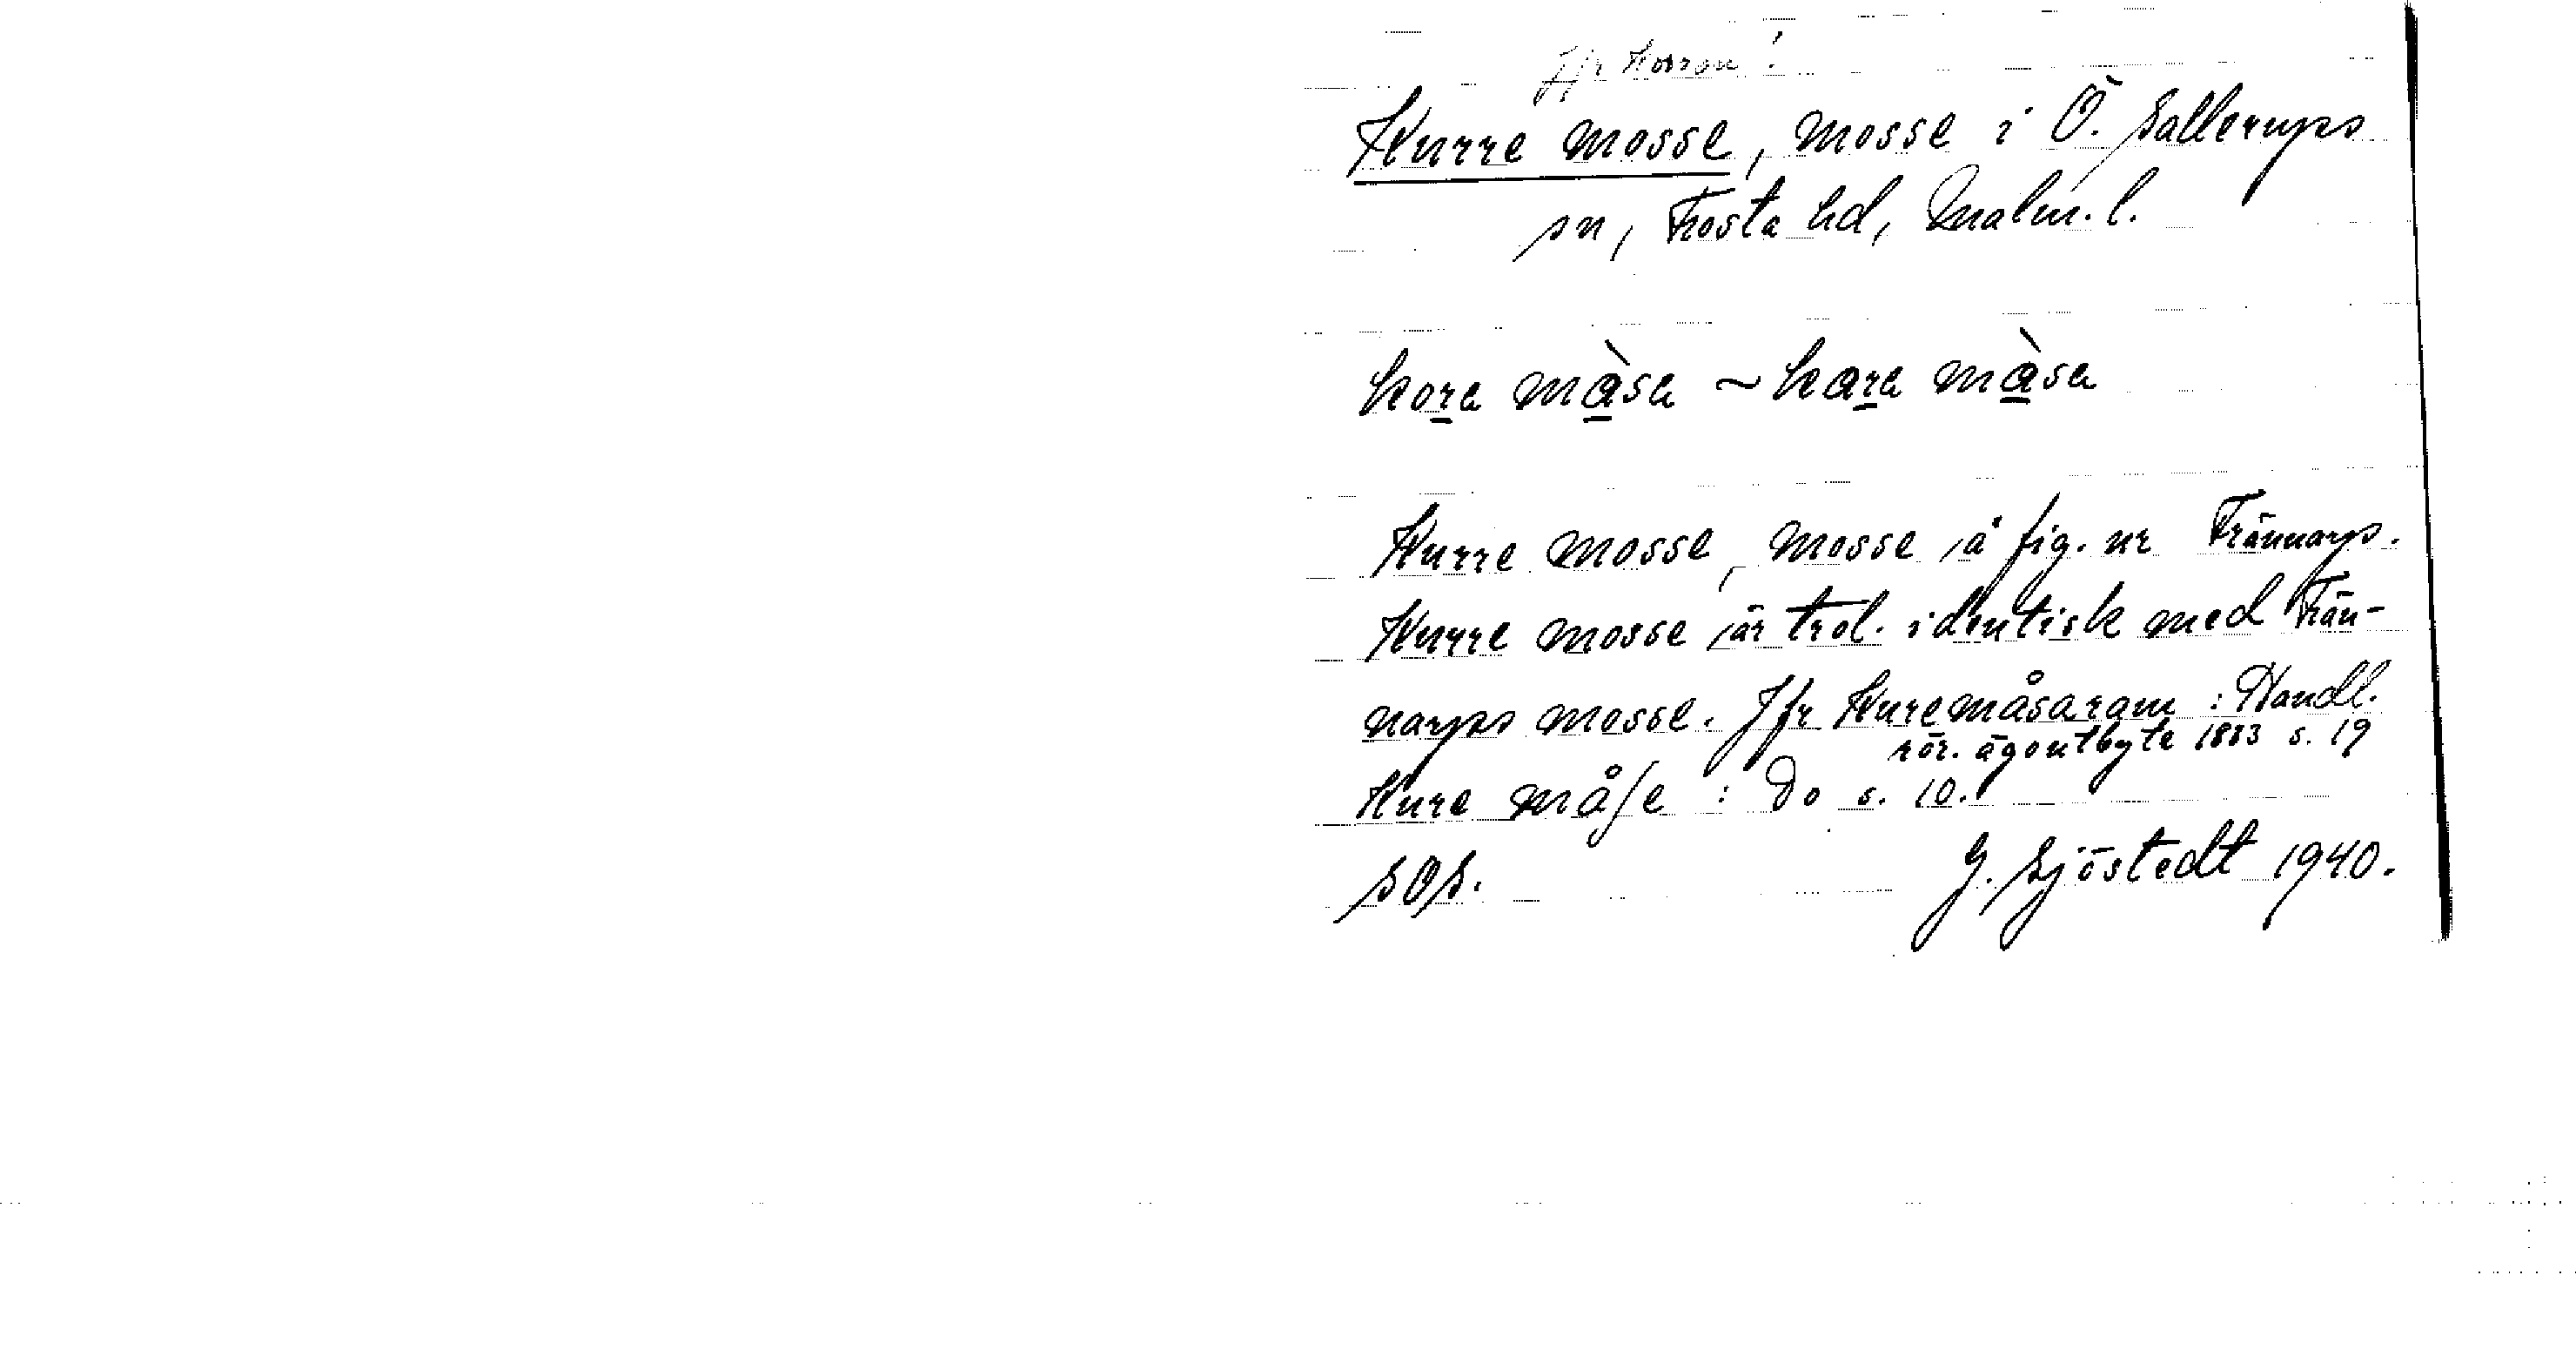 Jfr Korran!
Kurre mosse, mosse i Ö. Sallerups
sn, Frosta hd, Malm. l.
kora màsa ~ kara màsa
Kurre mosse, mosse å fig. nr Trännarps.
Kurre mosse är trol. identisk med Trän-
narps mosse. Jfr Kuremåsaram : Handl.
rör. ägoutbyte 1883 s. 19
Kure måſe : Do s. 10.
SOS. G. Sjöstedt 1940.